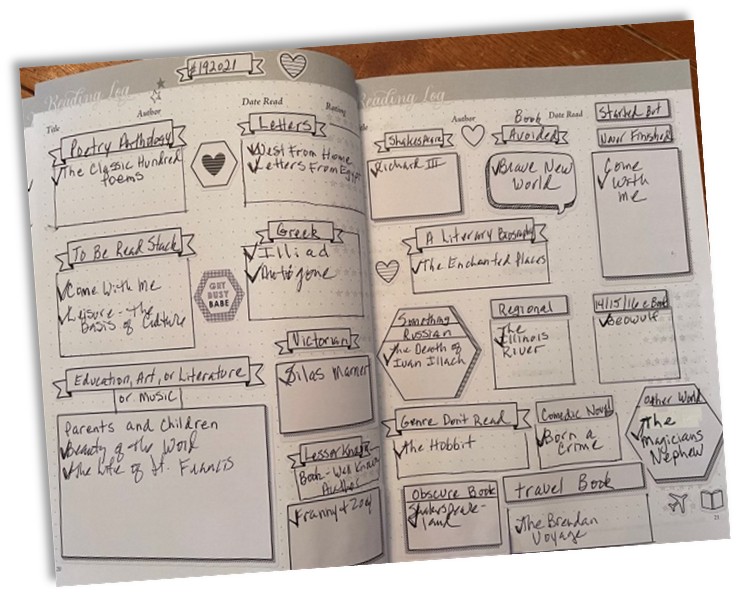 #192021
Reading Log
Title
Author
Date Read
Rating
Poetry Anthology
The Classic Hundred
Poems
Letters
West From Home
Letters From Egypt
To Be Read Stack
Come With me
Leisure - the
Basis of Culture
GET
BUSY
BABE
Greek
Illiad
Antigone
Education, Art, or Literature
or Music
Parents and Children
Beauty of the Word
The Life of St. Francis
Victorian
Silas Marner
Lesser Known
Book - Well Known
Author
Franny + Zoey
20
Reading Log
Title
Author
Date Read
Shakespeare
Richard III
Book
Avoided
Brave New
World
Started But
Never Finished
Come
With
me
A Literary Biography
The Enchanted Places
Something
Russian
The Death of
Ivan Illach
Regional
The
Illinois
River
14/15/16 c Book
Beowulf
Genre Don't Read
The Hobbit
Comedic Novel
Born a
Crime
other World
The
Magicians
Nephew
Obscure Book
Shakespeare-
land
travel Book
The Brendan
Voyage
21